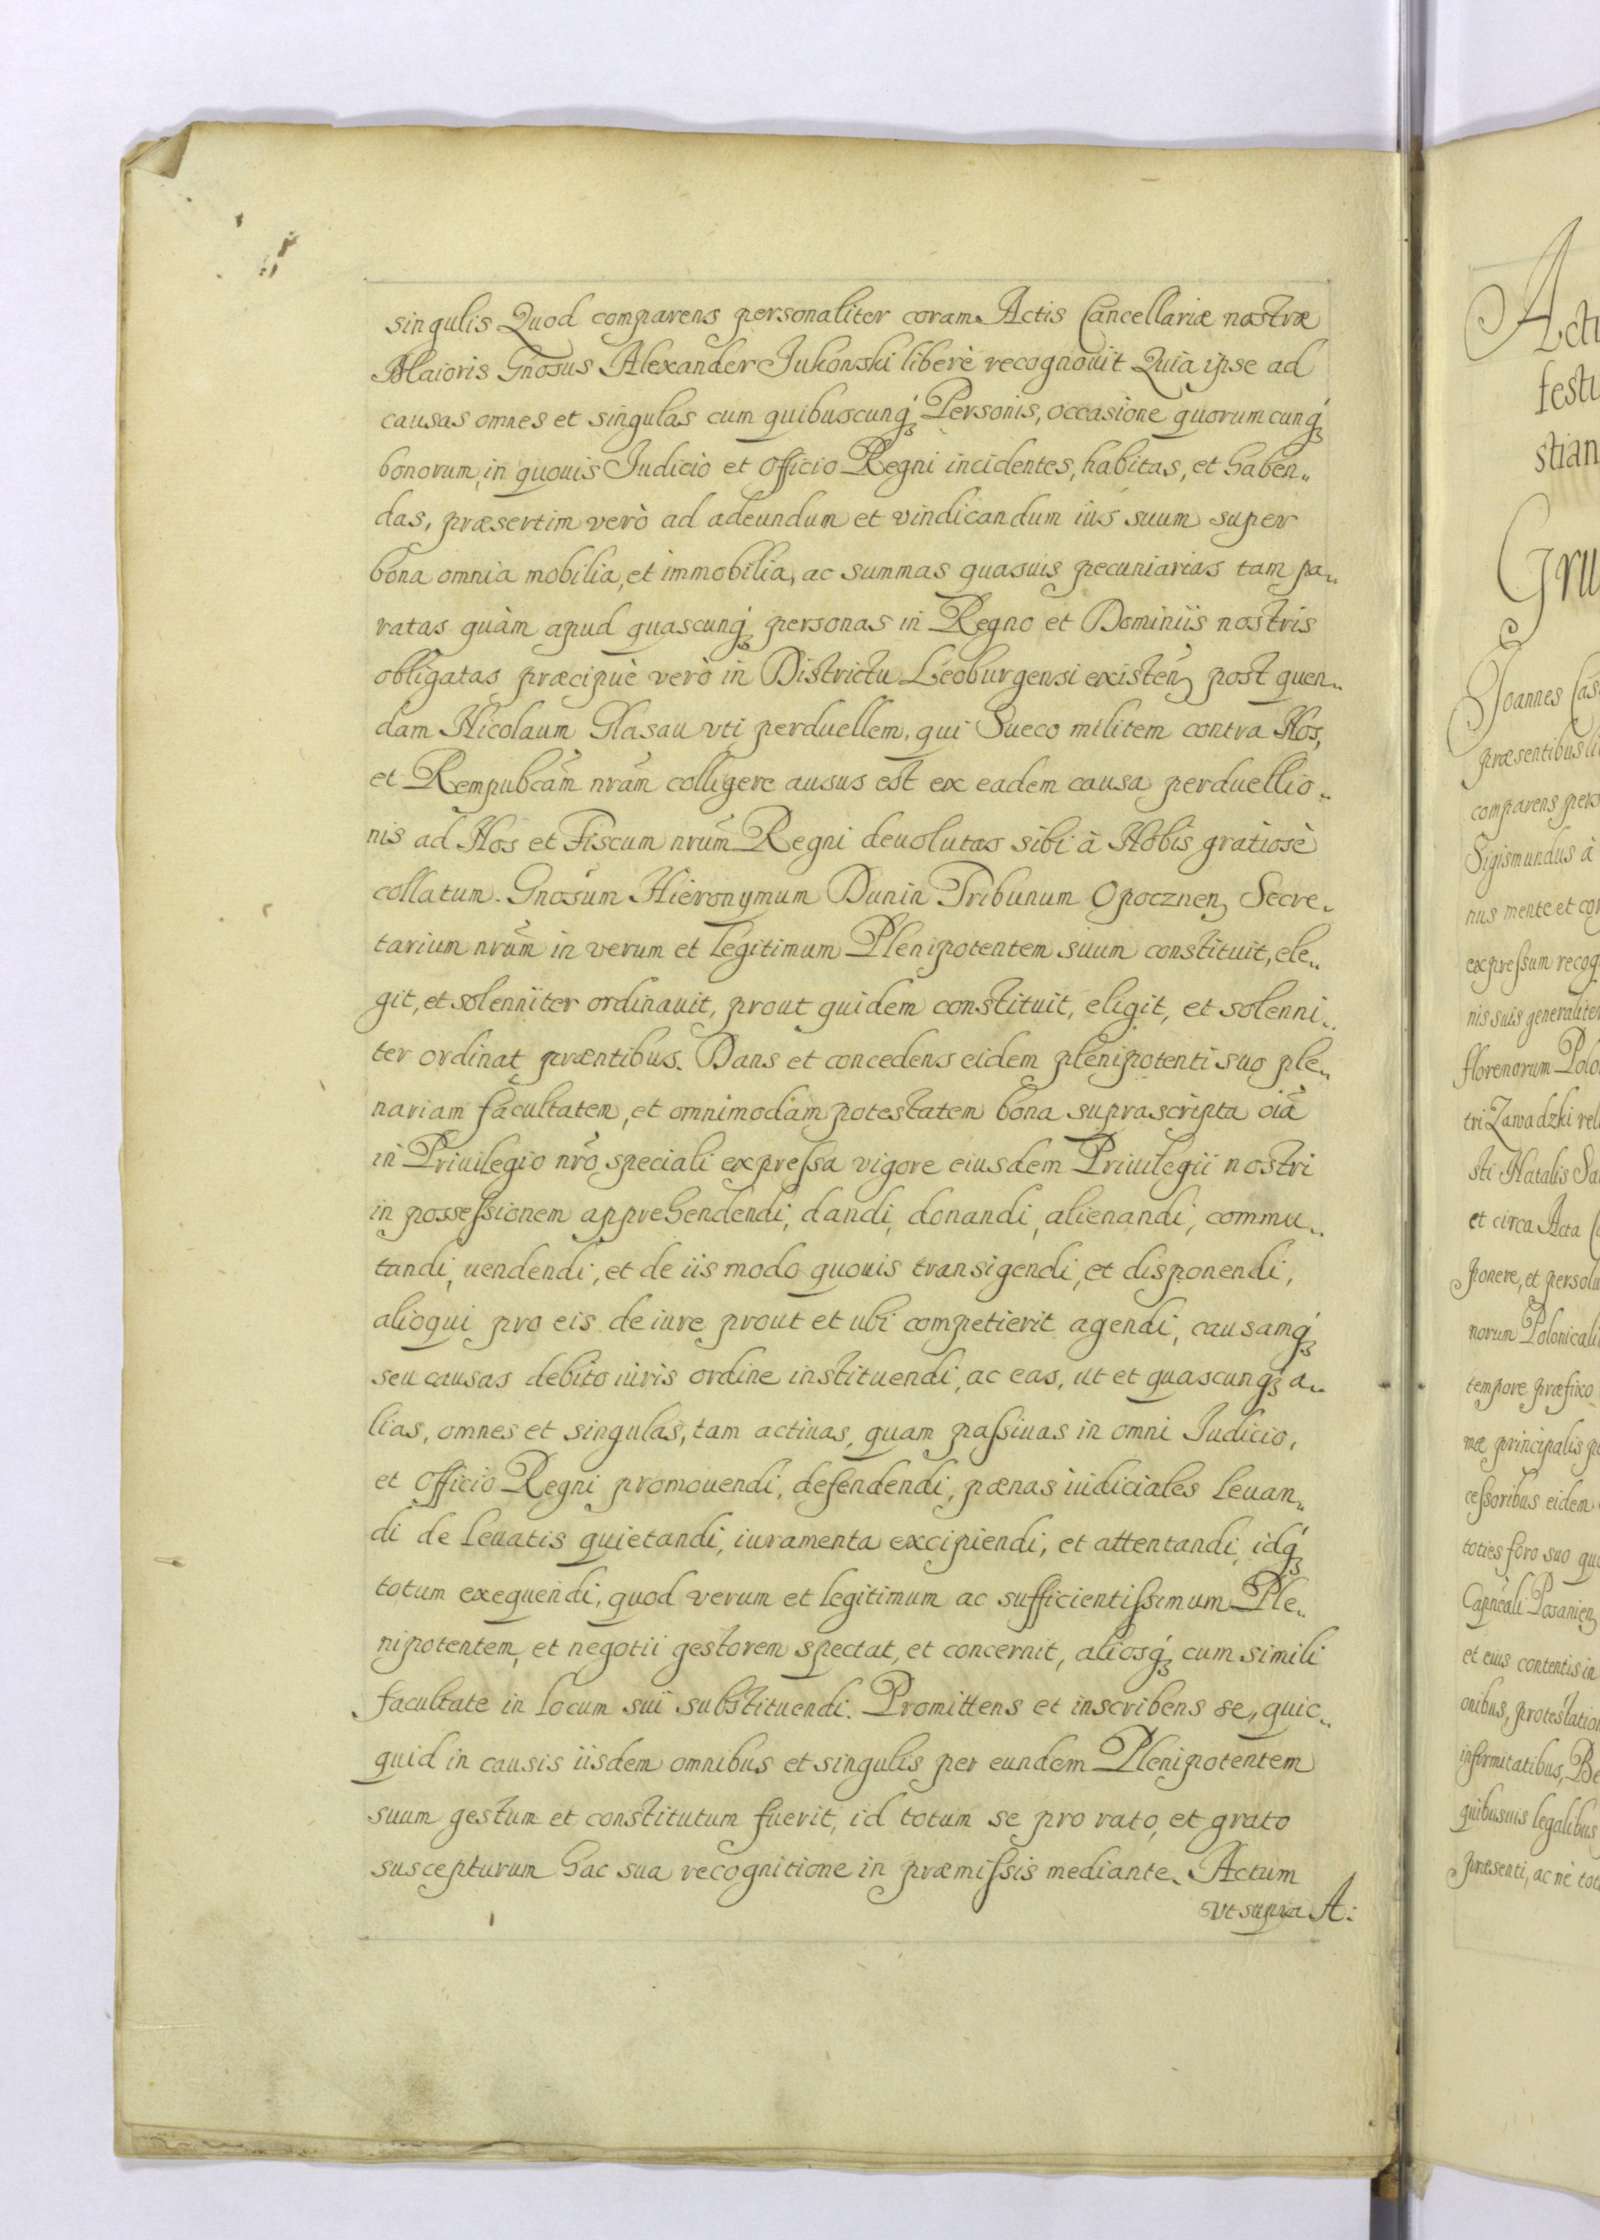 singulis Quod comparens personaliter coram Actis Cancellariæ nostræ
Maioris Gnosus Alexander Jukonski liberè recognouit Quia ipse ad
causas omnes et singulas cum quibuscunq́ꝫ Personis, occasione quorumcunq́ꝫ
bonorum, in quouis Judicio et Officio Regni incidentes, habitas, et haben„
das, præsertim verò ad adeundum et vindicandum ius suum super
bona omnia mobilia, et immobilia, ac summas quasuis pecuniarias tam pa„
ratas quàm apud quascunq́ꝫ personas in Regno et Dominiis nostris
obligatas præcipuè verò in Districtu Leoburgensi existen̄ post quen„
dam Nicolaum Glasau vti perduellem, qui Sueco militem contra Nos,
et Rempubcam̄ nram̄ colligere ausus est ex eadem causa perduellio„
nis ad Nos et Fiscum nrum̄ Regni deuolutas sibi à Nobis gratiosè
collatum. Gnosum Hieronymum Dunin Tribunum Opocznen, Secre„
tarium nrum̄ in verum et legitimum Plenipotentem suum constituit, ele„
git, et solenniter ordinauit, prout quidem constituit, eligit, et solenni„
ter ordinat præntibus. Dans et concedens eidem plenipotenti suo ple„
nariam facultatem, et omnimodam potestatem bona suprascripta oiā
in Priuilegio nrō speciali expreſsa vigore eiusdem Priuilegii nostri
in posseſsionem apprehendendi, dandi, donandi, alienandi, commu„
tandi, uendendi, et de iis modo quouis transigendi, et disponendi,
alioqui pro eis de iure prout et ubi competierit agendi, causamq́ꝫ
seu causas debito iuris ordine instituendi, ac eas, ut et quascunq́ꝫ a„
lias, omnes et singulas, tam actiuas, quam paſsiuas in omni Judicio,
et Officio Regni promouendi, defendendi, pœnas iudiciales leuan„
di de leuatis quietandi, iuramenta excipiendi, et attentandi, idq́ꝫ
totum exequendi, quod verum et legitimum ac sufficientiſsimum Ple„
nipotentem, et negotii gestorem spectat, et concernit, aliosq́ꝫ cum simili
facultate in locum sui substituendi. Promittens et inscribens se, quic„
quid in causis iisdem omnibus et singulis per eundem Plenipotentem
suum gestum et constitutum fuerit, id totum se pro rato, et grato
suscepturum hac sua recognitione in præmiſsis mediante. Actum
vt supra A:
Actu
festu
stian
Gru
Joannes Cas
præsentibus li
comparens pers
Sigismundus à
nus mente et cor
expreſsum recog
nis suis generaliter
florenorum Polo
tri Zawadzki rel
sti Natalis Sa
et circa Acta C
ponere, et persolu
norum Polonicali
tempore præfixo
mæ principalis p
ceſsoribus eidem
toties foro suo qu
Capneali Posanien
et eius contentis in
onibus, protestation
infirmitatibus, Be
quibusuis legalibus
præsenti, ac nè tot